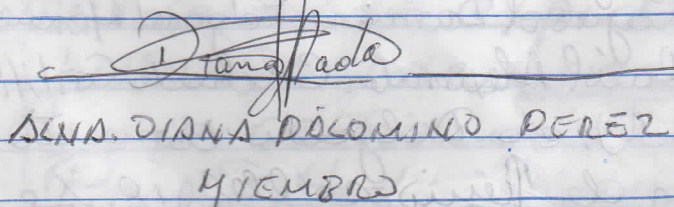 Diana Paola
ALNA. DIANA PALOMINO PEREZ
MIEMBRO